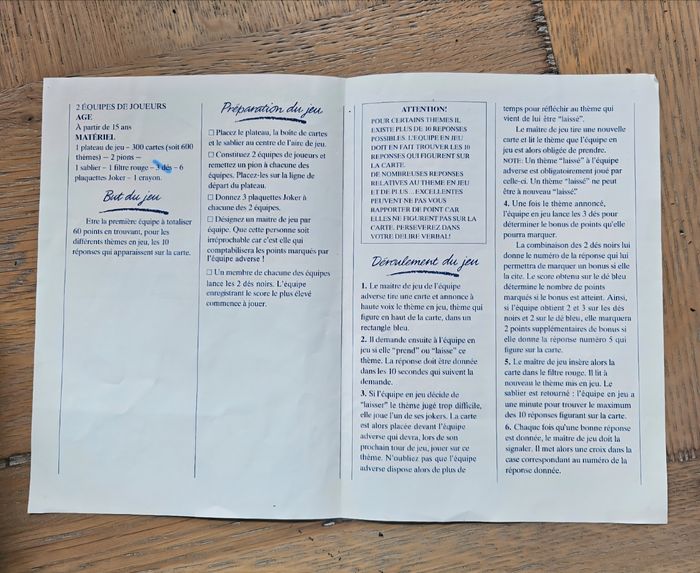 2 ÉQUIPES DE JOUEURS
AGE
À partir de 15 ans
MATÉRIEL
1 plateau de jeu – 300 cartes (soit 600
thèmes) – 2 pions –
1 sablier – 1 filtre rouge – 3 dés – 6
plaquettes Joker – 1 crayon.
But du jeu
Etre la première équipe à totaliser
60 points en trouvant, pour les
différents thèmes en jeu, les 10
réponses qui apparaissent sur la carte.
Préparation du jeu
□ Placez le plateau, la boîte de cartes
et le sablier au centre de l'aire de jeu.
□ Constituez 2 équipes de joueurs et
remettez un pion à chacune des
équipes. Placez-les sur la ligne de
départ du plateau.
□ Donnez 3 plaquettes Joker à
chacune des 2 équipes.
□ Désignez un maître de jeu par
équipe. Que cette personne soit
irréprochable car c'est elle qui
comptabilisera les points marqués par
l'équipe adverse !
□ Un membre de chacune des équipes
lance les 2 dés noirs. L'équipe
enregistrant le score le plus élevé
commence à jouer.
ATTENTION!
POUR CERTAINS THEMES IL
EXISTE PLUS DE 10 REPONSES
POSSIBLES. L'EQUIPE EN JEU
DOIT EN FAIT TROUVER LES 10
REPONSES QUI FIGURENT SUR
LA CARTE.
DE NOMBREUSES REPONSES
RELATIVES AU THEME EN JEU
ET DE PLUS... EXCELLENTES
PEUVENT NE PAS VOUS
RAPPORTER DE POINT CAR
ELLES NE FIGURENT PAS SUR LA
CARTE. PERSEVEREZ DANS
VOTRE DELIRE VERBAL!
Déroulement du jeu
1. Le maître de jeu de l'équipe
adverse tire une carte et annonce à
haute voix le thème en jeu, thème qui
figure en haut de la carte, dans un
rectangle bleu.
2. Il demande ensuite à l'équipe en
jeu si elle "prend" ou "laisse" ce
thème. La réponse doit être donnée
dans les 10 secondes qui suivent la
demande.
3. Si l'équipe en jeu décide de
"laisser" le thème jugé trop difficile,
elle joue l'un de ses jokers. La carte
est alors placée devant l'équipe
adverse qui devra, lors de son
prochain tour de jeu, jouer sur ce
thème. N'oubliez pas que l'équipe
adverse dispose alors de plus de
temps pour réfléchir au thème qui
vient de lui être "laissé".
Le maître de jeu tire une nouvelle
carte et lit le thème que l'équipe en
jeu est alors obligée de prendre.
NOTE: Un thème "laissé" à l'équipe
adverse est obligatoirement joué par
celle-ci. Un thème "laissé" ne peut
être à nouveau "laissé".
4. Une fois le thème annoncé,
l'équipe en jeu lance les 3 dés pour
déterminer le bonus de points qu'elle
pourra marquer.
La combinaison des 2 dés noirs lui
donne le numéro de la réponse qui lui
permettra de marquer un bonus si elle
la cite. Le score obtenu sur le dé bleu
détermine le nombre de points
marqués si le bonus est atteint. Ainsi,
si l'équipe obtient 2 et 3 sur les dés
noirs et 2 sur le dé bleu, elle marquera
2 points supplémentaires de bonus si
elle donne la réponse numéro 5 qui
figure sur la carte.
5. Le maître de jeu insère alors la
carte dans le filtre rouge. Il lit à
nouveau le thème mis en jeu. Le
sablier est retourné : l'équipe en jeu a
une minute pour trouver le maximum
des 10 réponses figurant sur la carte.
6. Chaque fois qu'une bonne réponse
est donnée, le maître de jeu doit la
signaler. Il met alors une croix dans la
case correspondant au numéro de la
réponse donnée.